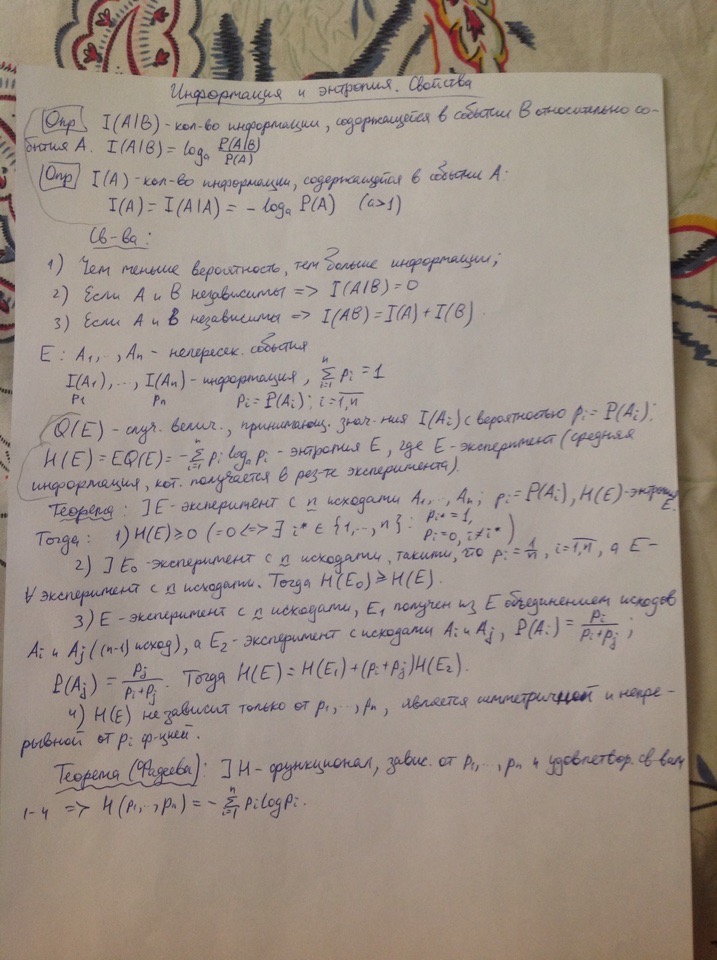 Информация и энтропия. Свойства
Опр I(A|B) - кол-во информации, содержащейся в событии B относительно со-
бытия A. I(A|B) = logₐ P(A|B)/P(A)
Опр I(A) - кол-во информации, содержащейся в событии A:
I(A) = I(A|A) = - logₐ P(A) (a>1)
Св-ва:
1) Чем меньше вероятность, тем больше информации;
2) Если A и B независимы => I(A|B) = 0
3) Если A и B независимы => I(AB) = I(A) + I(B).
E: A₁,.., Aₙ - непересек. события
I(A₁),..., I(Aₙ) - информация, ∑ᵢ₌₁ⁿ pᵢ = 1
p₁ pₙ pᵢ = P(Aᵢ); i = 1,n
Q(E) - случ. велич., принимающ. знач-ния I(Aᵢ) с вероятностью pᵢ = P(Aᵢ);
H(E) = EQ(E) = -∑ᵢ₌₁ⁿ pᵢ logₐ pᵢ - энтропия E, где E - эксперимент (средняя
информация, кот. получается в рез-те эксперимента).
Теорема: ] E - эксперимент с n исходами A₁,.., Aₙ; pᵢ = P(Aᵢ), H(E) - энтропия E.
Тогда: 1) H(E) ≥ 0 (=0 <=> ∃ i* ∈ {1,..,n}: pᵢ* = 1, pᵢ = 0, i ≠ i*)
2) ] E₀ - эксперимент с n исходами, такими, что pᵢ = 1/n, i = 1,n, а E -
∀ эксперимент с n исходами. Тогда H(E₀) ≥ H(E).
3) E - эксперимент с n исходами, E₁ получен из E объединением исходов
Aᵢ и Aⱼ ((n-1) исход), а E₂ - эксперимент с исходами Aᵢ и Aⱼ, P(Aᵢ) = pᵢ/(pᵢ+pⱼ);
P(Aⱼ) = pⱼ/(pᵢ+pⱼ). Тогда H(E) = H(E₁) + (pᵢ+pⱼ)H(E₂).
4) H(E) не зависит только от p₁,..., pₙ, является симметричной и непре-
рывной от pᵢ ф-цией.
Теорема (Фадеева): ] H - функционал, завис. от p₁,..., pₙ и удовлетвор. св-вам
1-4 => H(p₁,.., pₙ) = -∑ᵢ₌₁ⁿ pᵢ log pᵢ.